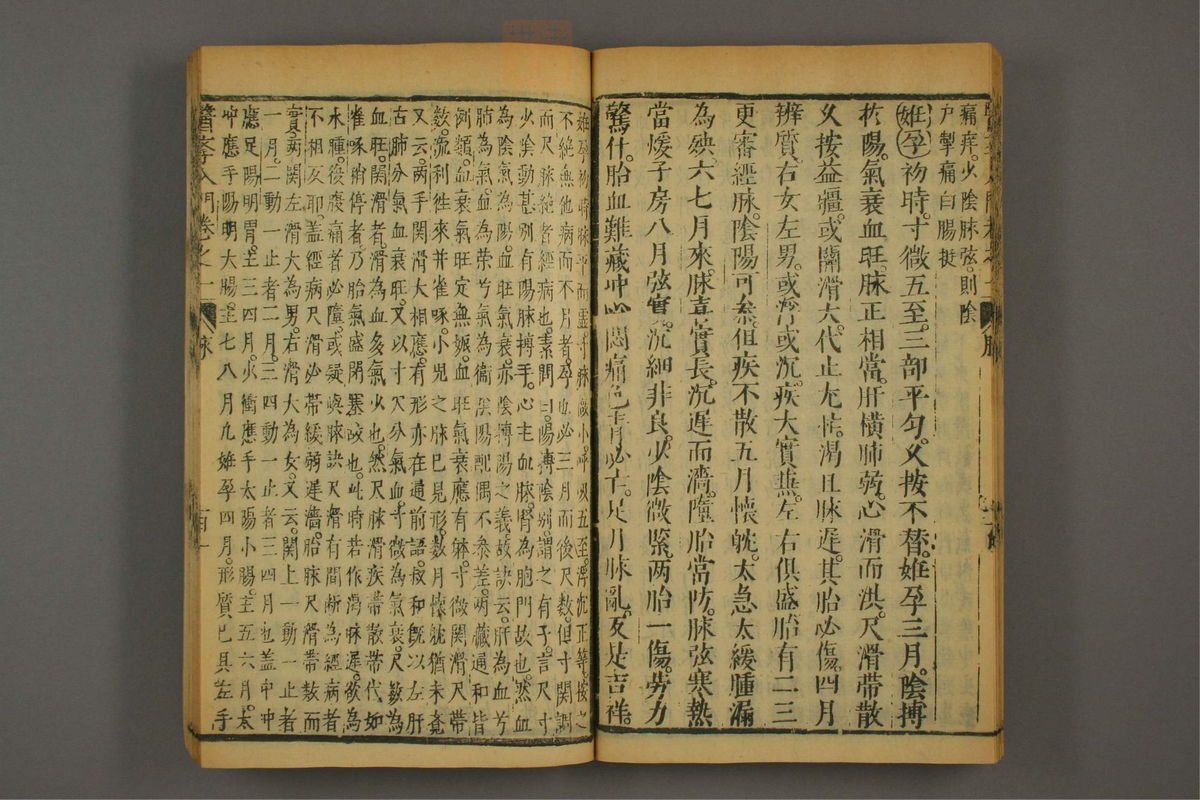 痛痒火陰脉弦則陰
戶掣痛白腸挺
姙孕初時寸微五至三部平勻久按不替姙孕三月陰搏
於陽氣衰血旺脉正相當肝橫肺弱心滑而洪尺滑帶散
久按益彊或關滑大代止尤忙渴且脉遲其胎必傷四月
辨質右女左男或浮或沉疾大實兼左右俱盛胎有二三
更審經脉陰陽可叅但疾不散五月懷躭太急太緩腫漏
為殃六七月來脉喜實長沉遲而濇墮胎當防脉弦寒熱
當煖子房八月弦實沉細非良少陰微緊两胎一傷勞力
驚仆胎血難藏冲心悶痛色青必亡足月脉亂反是吉祥
姙孕初時脉平而虛寸脉微小呼吸五至浮沉正等按之
不絶無他病而不月者孕也必三月而後尺数但寸關調
而尺脉絶者經病也素問曰陽搏陰别謂之有子言尺寸
少陰動甚别有陽脉搏手心主血脉腎為胞門故也然血
為陰氣為陽血旺氣衰亦陰搏陽之義故訣云肝為血兮
肺為氣血為荣兮氣為衞陰陽配偶不叅差两藏通和皆
例類血衰氣旺定無娠血旺氣衰應有躰寸微關滑尺帶
数流利徃來并雀啄小兒之脉已見形数月懷躭猶未覺
又云两手關滑大相應有形亦在通前語叔和旣以左肝
右肺分氣血衰旺又以寸尺分氣血寸微為氣衰尺数為
血旺關滑者滑為血多氣少也然尺脉滑疾帶散帶代如
雀啄稍停者乃胎氣盛閉塞故也此時若作渴脉遲欲為
水腫後腹痛者必墮或疑嶼脉訣尺滑有間斷為經病者
不相反耶盖經病尺滑必帶緩弱遲濇胎脉尺滑帶数而
實两關左滑大為男右滑大為女又云關上一動一止者
一月二動一止者二月三四動一止者三四月也盖中冲
應足陽明胃主三四月火衝應手太陽小腸主五六月太
冲應手陽明大腸主七八月九姙孕四月形質已具左手
醫李入門卷之一 脉